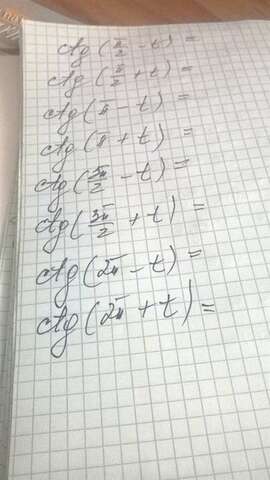 ctg(π/2 - t) =
ctg(π/2 + t) =
ctg(π - t) =
ctg(π + t) =
ctg(3π/2 - t) =
ctg(3π/2 + t) =
ctg(2π - t) =
ctg(2π + t) =